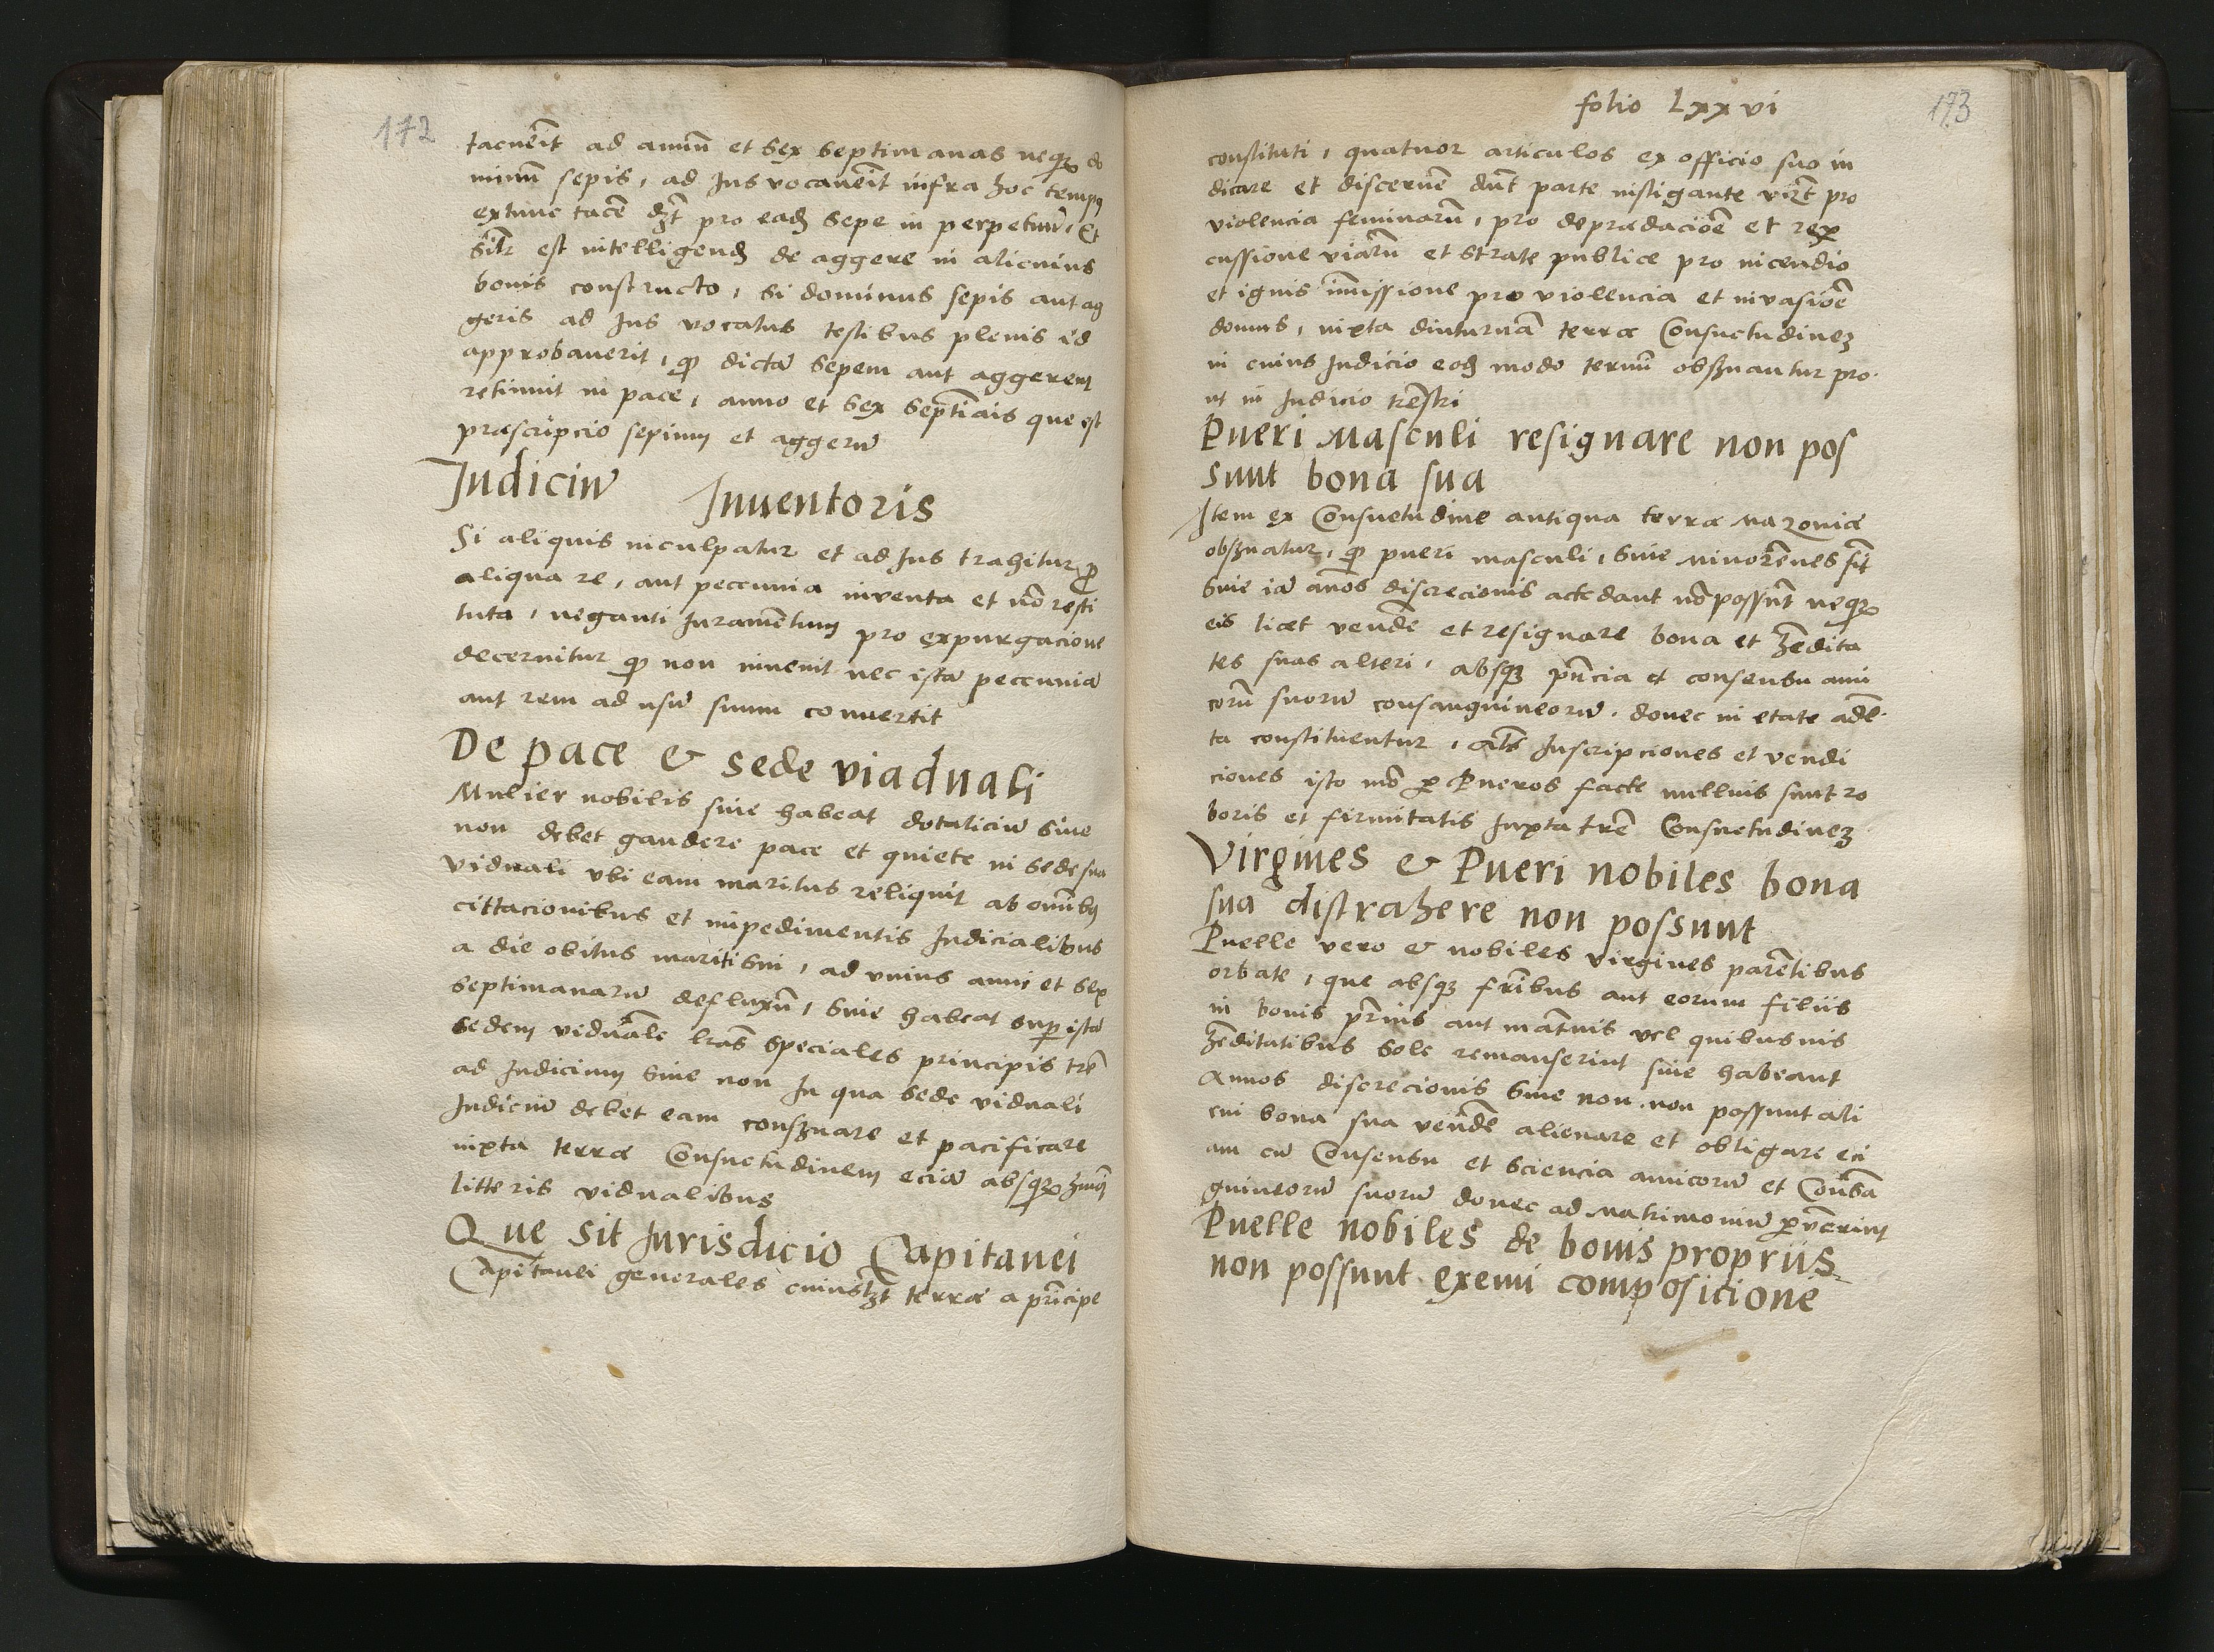 172
tacuerit ad annum et sex septimanas neque do
minum sepis, ad Jus vocauerit infra hoc tempus
extunc tacere debet pro eadem sepe in perpetuum, Et
similiter est intelligendum de aggere in alicuius
bonis constructo, Si dominus sepis aut ag
geris ad Jus vocatus testibus plenis id
approbauerit, quod dictam sepem aut aggerem
retinuit in pace, anno et sex septimanis que est
præscripcio sepium et aggerum
Judicium Inuentoris
Si aliquis inculpatur et ad Jus trahitur pro
aliqua re, aut peccunia inventa et non resti
tuta, neganti Juramentum pro expurgacione
decernitur quod non inuenit nec istam peccuniam
aut rem ad usum suum conuertit
De pace & sede viaduali
Mulier nobilis siue habeat dotalicium siue
non debet gaudere pace et quiete in sede sua
viduali vbi eam maritus reliquit ab omnibus
cittacionibus et impedimentis Judicialibus
a die obitus mariti sui, ad vnius anni et sex
septimanarum defluxum, siue habeat super istam
sedem vidualem literas speciales principis terre
ad Judicium siue non In qua sede viduali
Judicium debet eam conseruare et pacificare
iuxta terræ Consuetudinem eciam absque huiusmodi
litteris vidualibus
Que sit Jurisdicio Capitanei
Capitanei generales cuiuslibet terræ a principe
folio Lxxvi
173
constituti, quatuor articulos ex officio suo iu
dicare et discernere debent parte instigante videlicet pro
violencia feminarum, pro deprædacione et reper
cussione viarum et strate publice pro incendio
et ignis immissione pro violencia et invasione
domus, iuxta diuturnam terræ Consuetudinem
in cuius Judicio eodem modo termini obseruantur pro
ut in Judicio terrestri
Pueri Masculi resignare non pos
sunt bona sua
Item ex Consuetudine antiqua terræ Mazoviæ
obseruatur, quod pueri masculi, siue minorennes sint
siue iam annos discrecionis accedant non possunt neque
eis licet vendere et resignare bona et heredita
tes suas alteri, absque presencia et consensu ami
corum suorum consanguineorum, donec in etate adul
ta constituentur, alias Inscripciones et vendi
ciones isto modo per Pueros facte nullius sunt ro
boris et firmitatis Juxta terre Consuetudinem
Virgines & Pueri nobiles bona
sua distrahere non possunt
Puelle vero & nobiles virgines parentibus
orbate, que absque fratribus aut eorum filiis
in bonis paternis aut maternis vel quibusuis
hereditatibus sole remanserint siue habeant
Annos discrecionis siue non non possunt ali
cui bona sua vendere alienare et obligare eci
am cum Consensu et sciencia amicorum et Consan
guineorum suorum donec ad Matrimonium peruenerint
Puelle nobiles de bonis propriis
non possunt exemi composicione